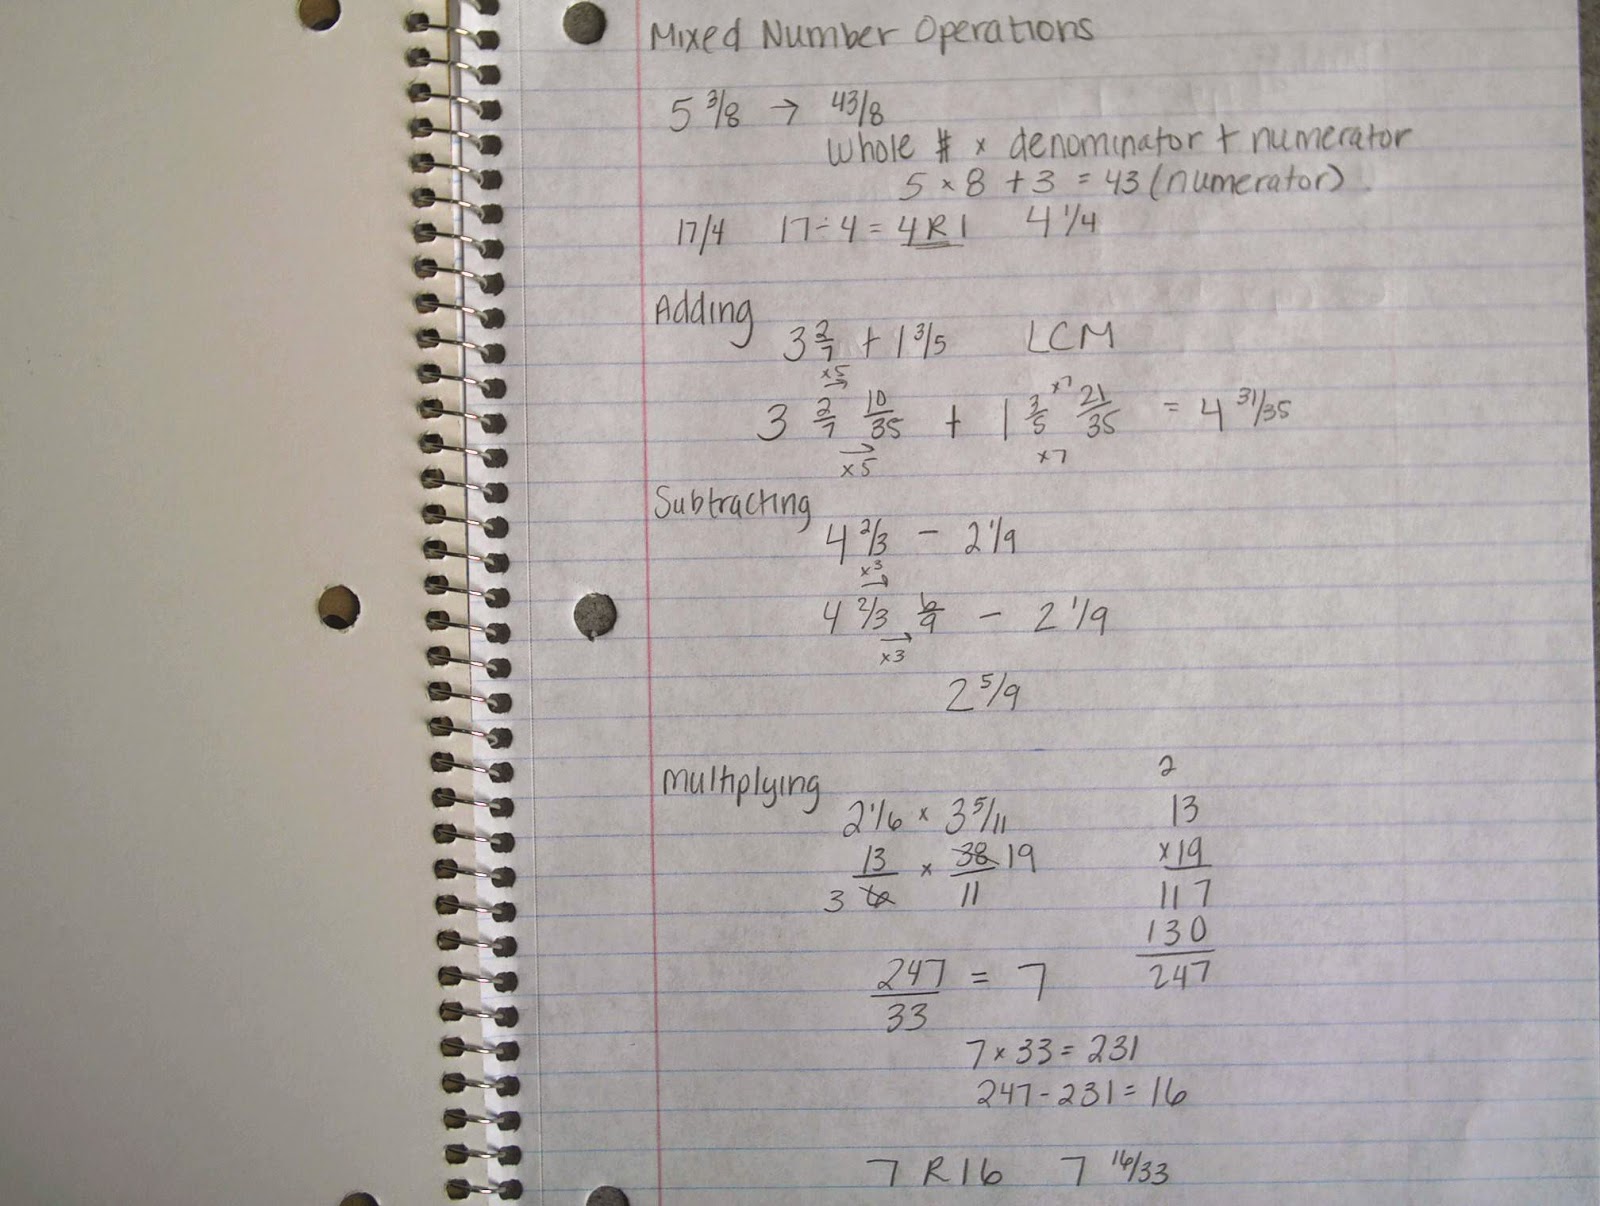 Mixed Number Operations
5 3/8 → 43/8
Whole # × denominator + numerator
5 × 8 + 3 = 43 (numerator)
17/4 17÷4 = 4 R 1 4 1/4
Adding
3 2/7 + 1 3/5 LCM
×5
→ ×7
3 2/7 10/35 + 1 3/5 21/35 = 4 31/35
→
×5 ×7
Subtracting
4 2/3 - 2 1/9
×3
→
4 2/3 6/9 - 2 1/9
→
×3
2 5/9
Multiplying 2
2 1/6 × 3 5/11 13
13/6 × 38/11 19 ×19
3 117
130
247/33 = 7 247
7 × 33 = 231
247 - 231 = 16
7 R 16 7 16/33